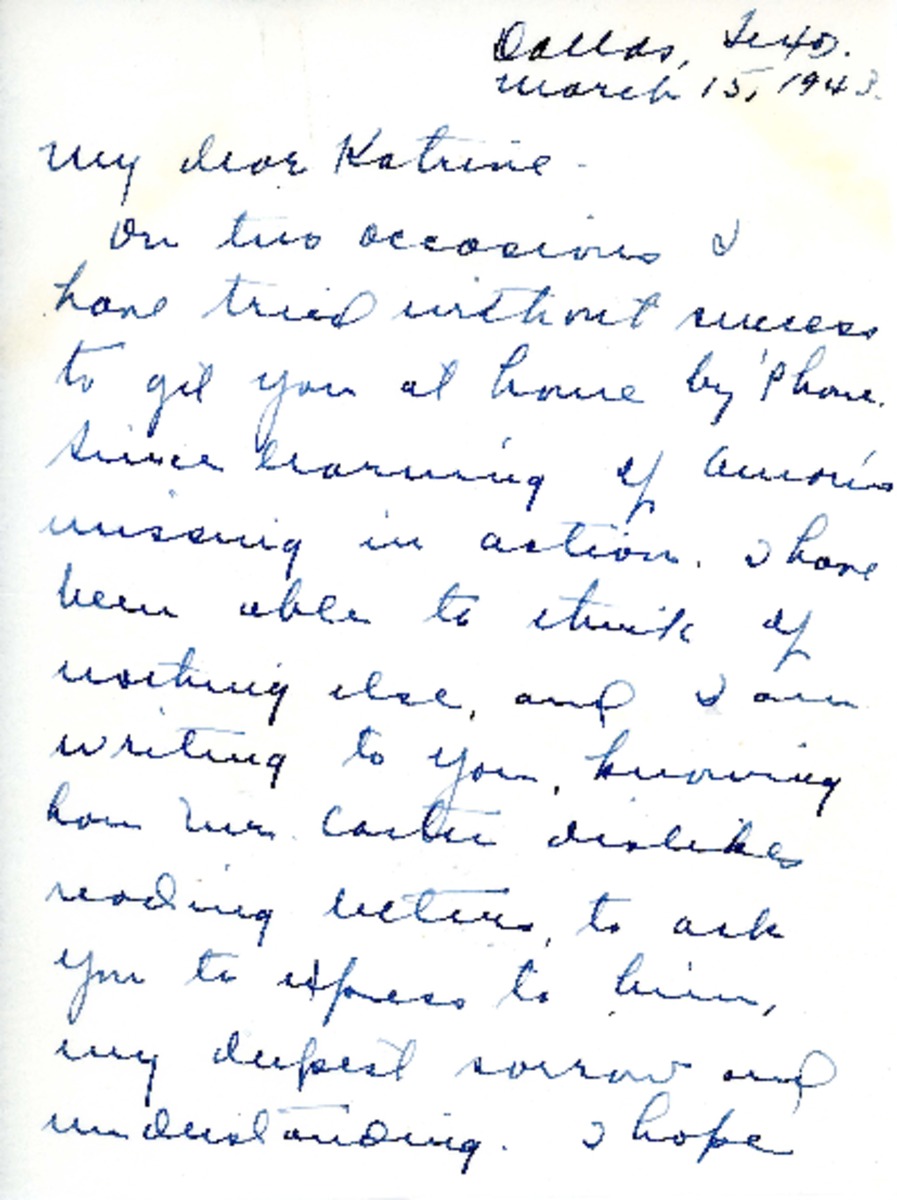 Dallas, Texas.
March 15, 1943.
My dear Katrine -
On two occasions I
have tried without success
to get you at home by 'Phone.
Since learning of Amon's
missing in action. I have
been able to think of
nothing else, and I am
writing to you, knowing
how Mr. Carter dislikes
reading letters, to ask
you to express to him,
my deepest sorrow and
understanding. I hope